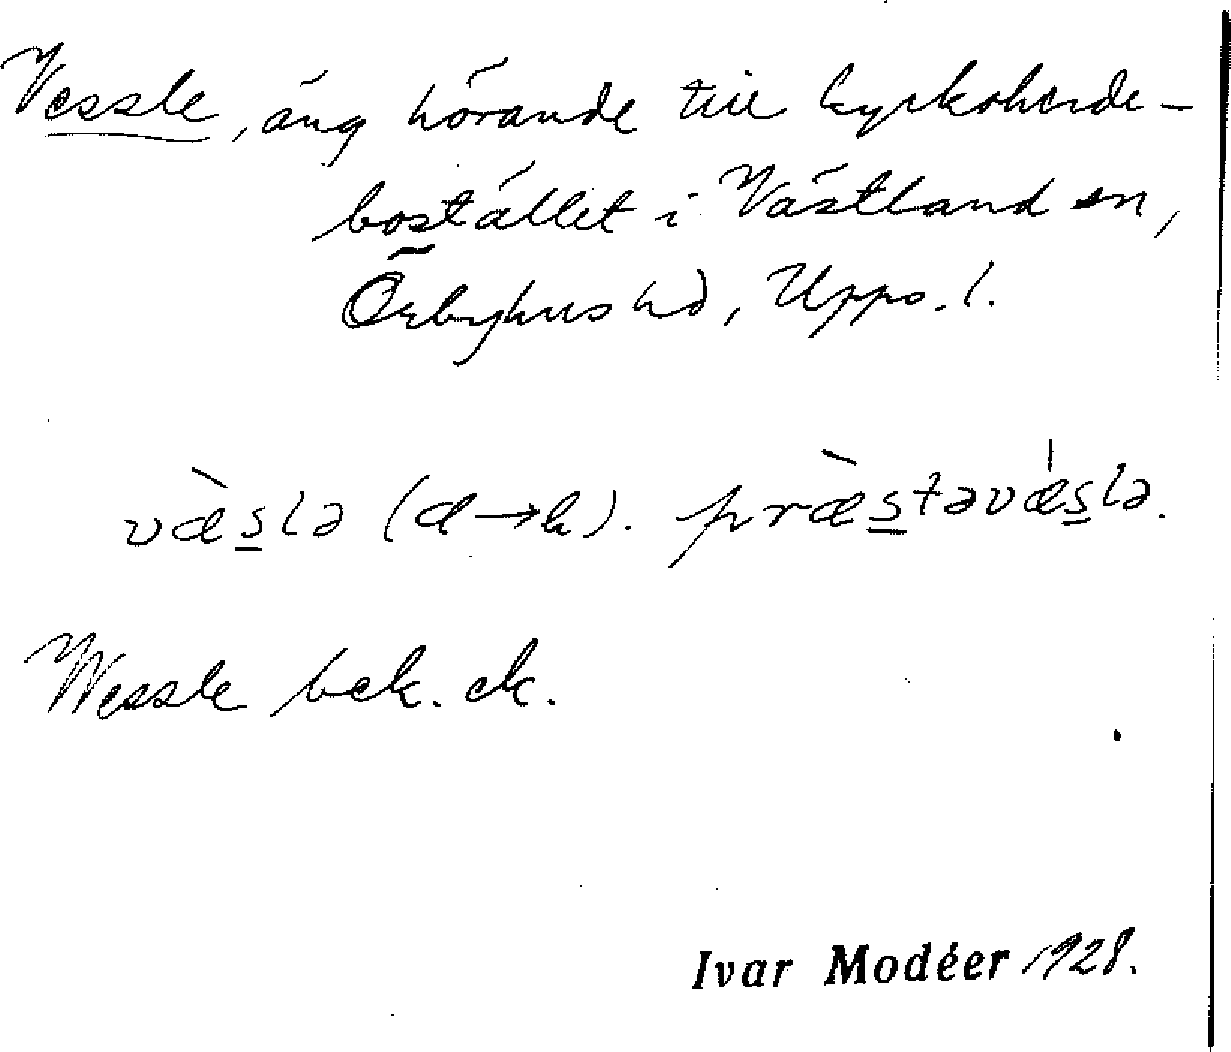 Vessle, äng hörande till kyrkoherde-
bostället i Västland sn,
Örbyhus hd, Upps. l.
væ̀slə (æ→ä). præ̀stəvǽslə.
Wessle bek. ek.
Ivar Modéer 1928.